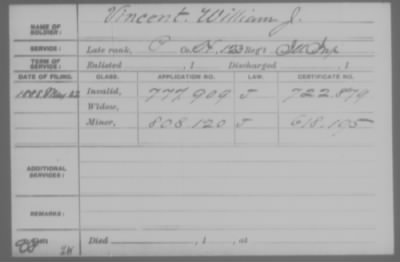 Vincent, William J.
NAME OF SOLDIER:
SERVICE: Late rank, Co. H, 123 Reg't
TERM OF SERVICE: Enlisted , 1 Discharged , 1
DATE OF FILING. CLASS. APPLICATION NO. LAW. CERTIFICATE NO.
May 22 Invalid, 777.909 J 722.879
Widow,
Minor, 808.120 J 618.195
ADDITIONAL SERVICES:
REMARKS:
Died , 1 , at